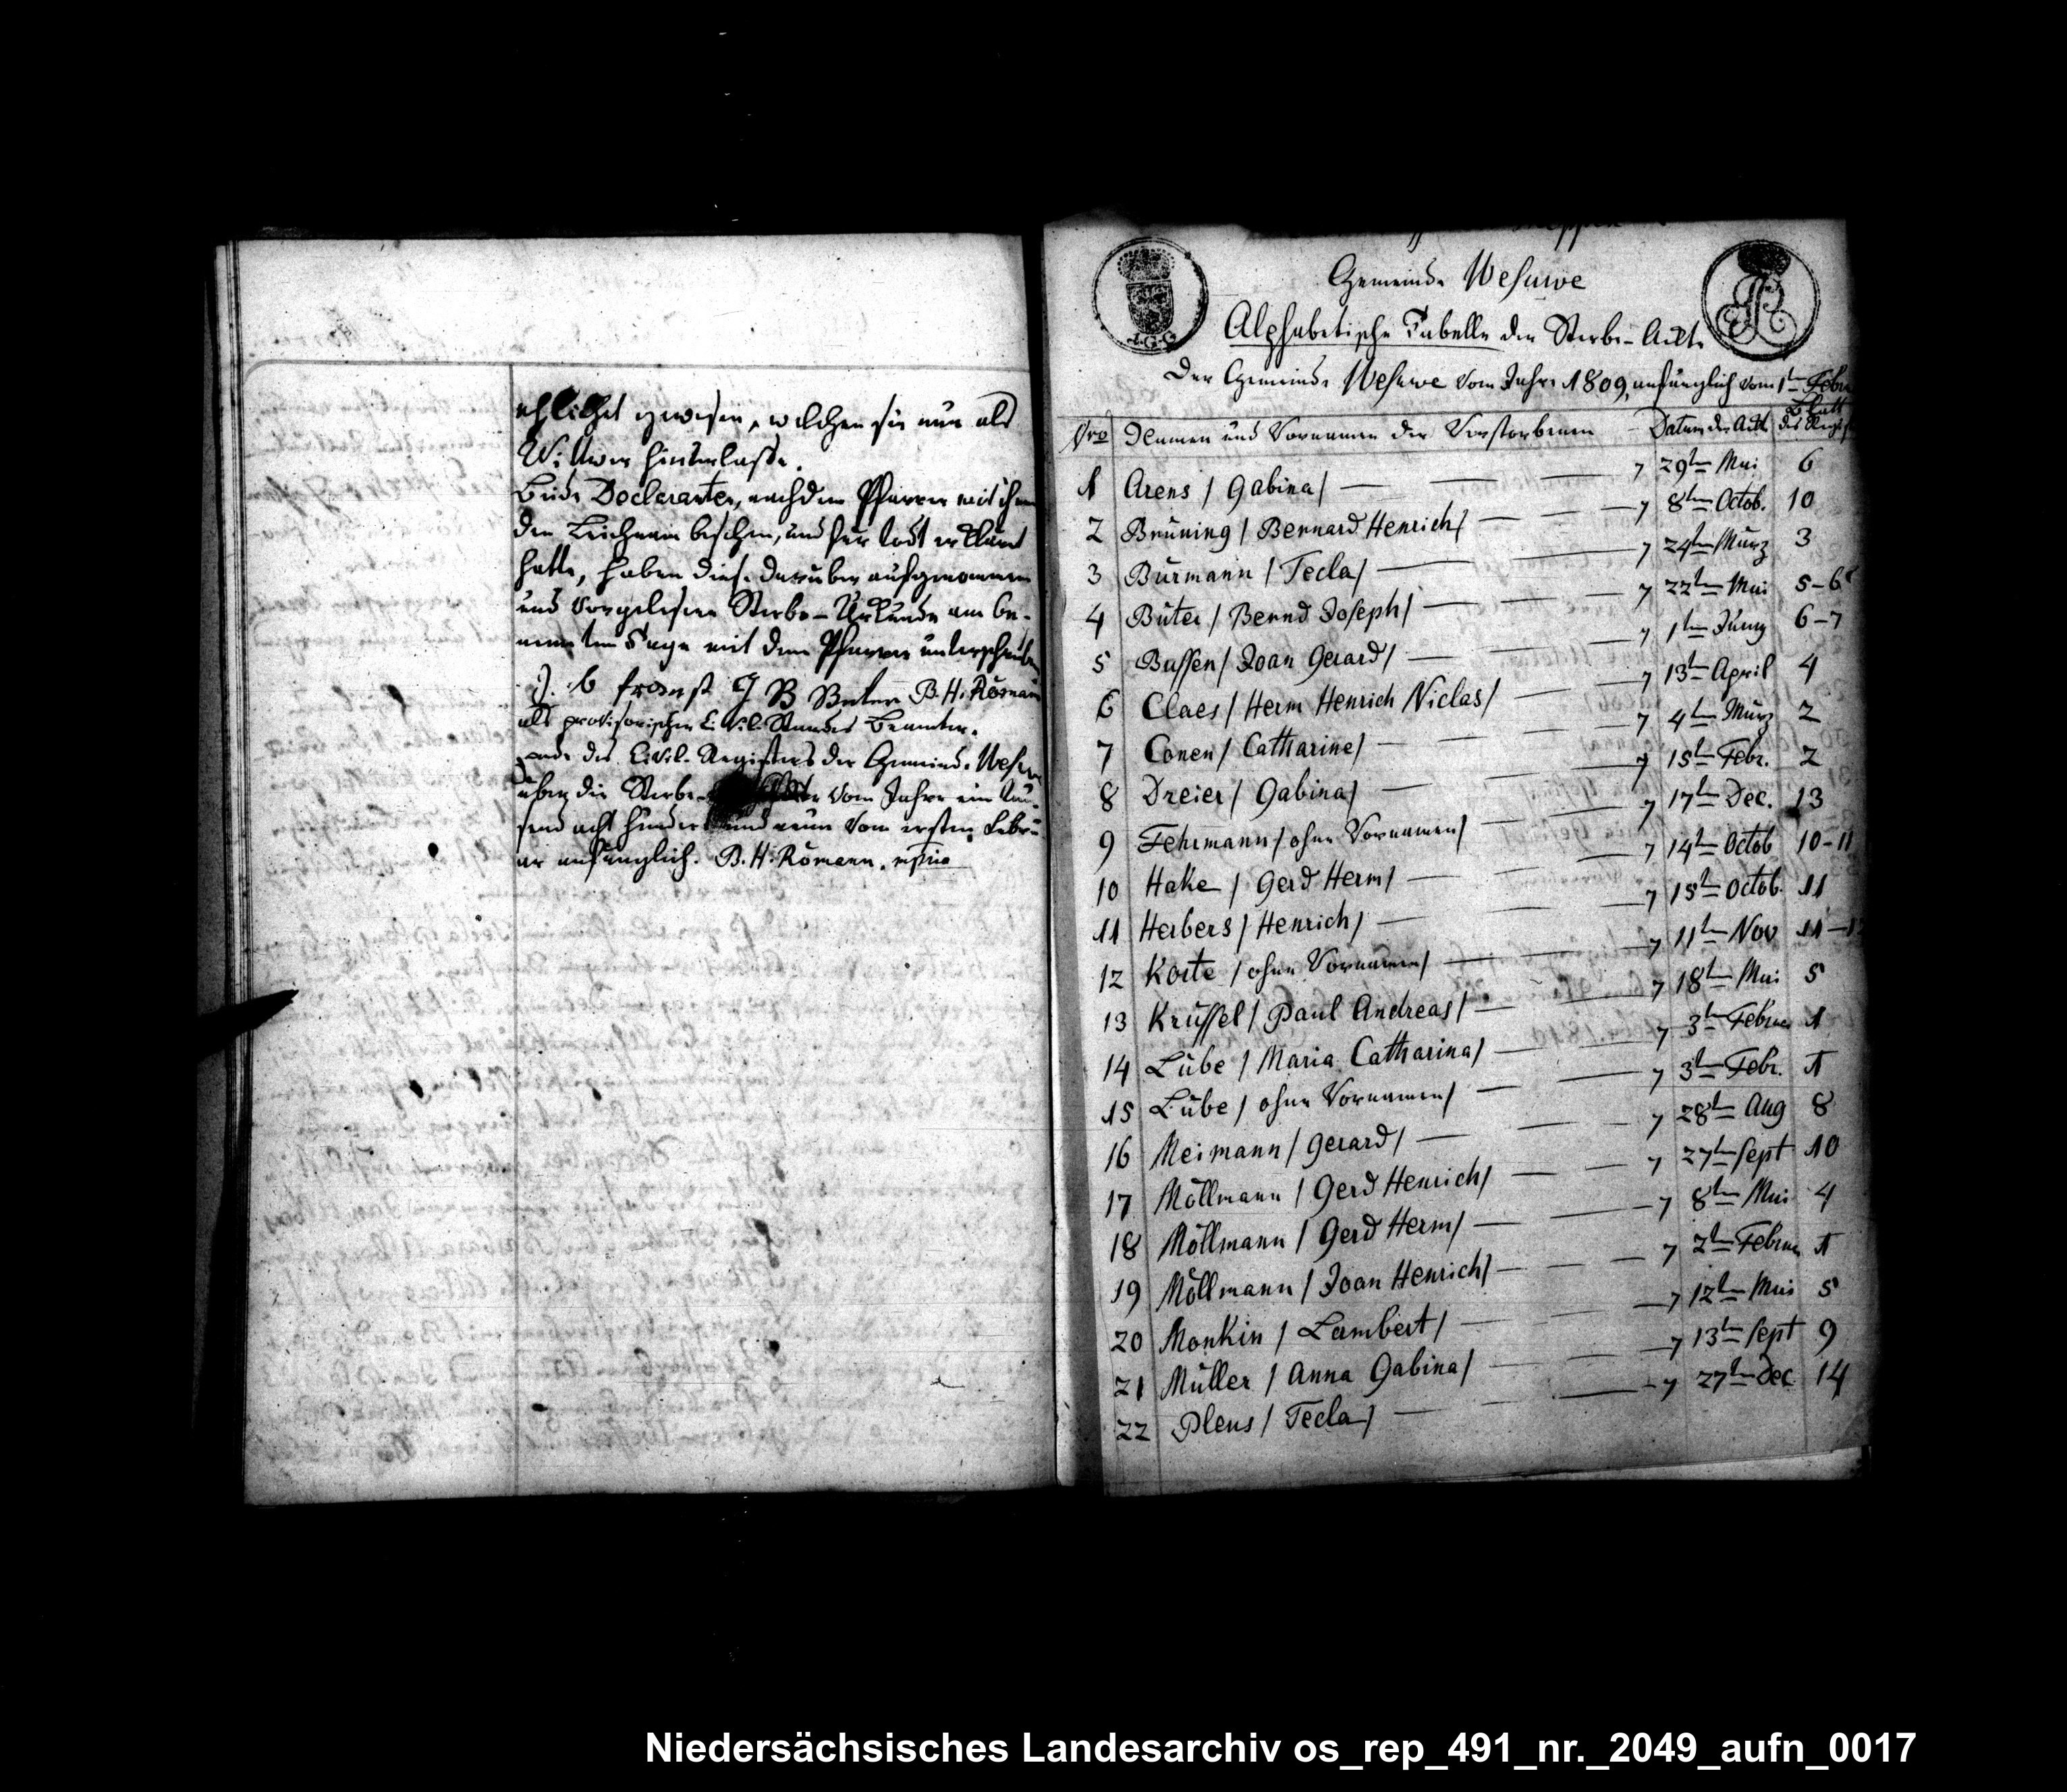 ehlichet gewesen, welchen sie nun als
Wittwer hinterlasse.
Beide Declaranten, nachdem Pfarrer mit ihnen
den Leichnam besehen, und für todt erklärt
hatte, haben diese darüber aufgenommen
und vorgelesene Sterbe-Urkunde am be-
nannten Tage mit dem Pfarrer unterschrieben
J. B. H. Römann
als provisorischer Civil-Standes Beamter.
Ende des Civil-Registers der Gemeinde Wesuwe
über die Sterbe- vom Jahre ein tau-
send acht hundert und neun vom ersten Febru-
ar anfänglich. B. H. Römann. mpria
Gemeinde Wesuwe
Alphabetische Tabelle der Sterbe-Ackte
Der Gemeinde Wesuwe vom Jahre 1809, anfänglich vom 1ten Febru
Nro Namen und Vornamen der Verstorbenen Datum der Ackt Blatt des Regist
1 Arens / Gabina / 29ten Mai 6
2 Brüning / Bernard Henrich / 8ten Octob. 10
3 Burmann / Tecla / 24ten März 3
4 Büter / Bernd Joseph / 22ten Mai 5-6
5 Bussen / Joan Gerard / 1ten Juny 6-7
6 Claes / Herm Henrich Niclas / 13ten April 4
7 Conen / Catharine / 4ten März 2
8 Dreier / Gabina / 15ten Febr. 2
9 Fehrmann / ohne Vornamen / 17ten Dec. 13
10 Hake / Gerd Herm / 14ten Octob 10-11
11 Herbers / Henrich / 15ten Octob. 11
12 Korte / ohne Vornamen / 11ten Nov 11-12
13 Krüssel / Paul Andreas / 18ten Mai 5
14 Lübe / Maria Catharina / 3ten Februar 1
15 Lübe / ohne Vornamen / 3ten Febr. 1
16 Meimann / Gerard / 28ten Aug 8
17 Möllmann / Gerd Henrich / 27ten Sept 10
18 Möllmann / Gerd Herm / 8ten Mai 4
19 Möllmann / Joan Henrich / 2ten Februar 1
20 Monkin / Lambert / 12ten Mai 5
21 Müller / Anna Gabina / 13ten Sept 9
22 Plens / Tecla / 27ten Dec 14
Niedersächsisches Landesarchiv os_rep_491_nr._2049_aufn_0017